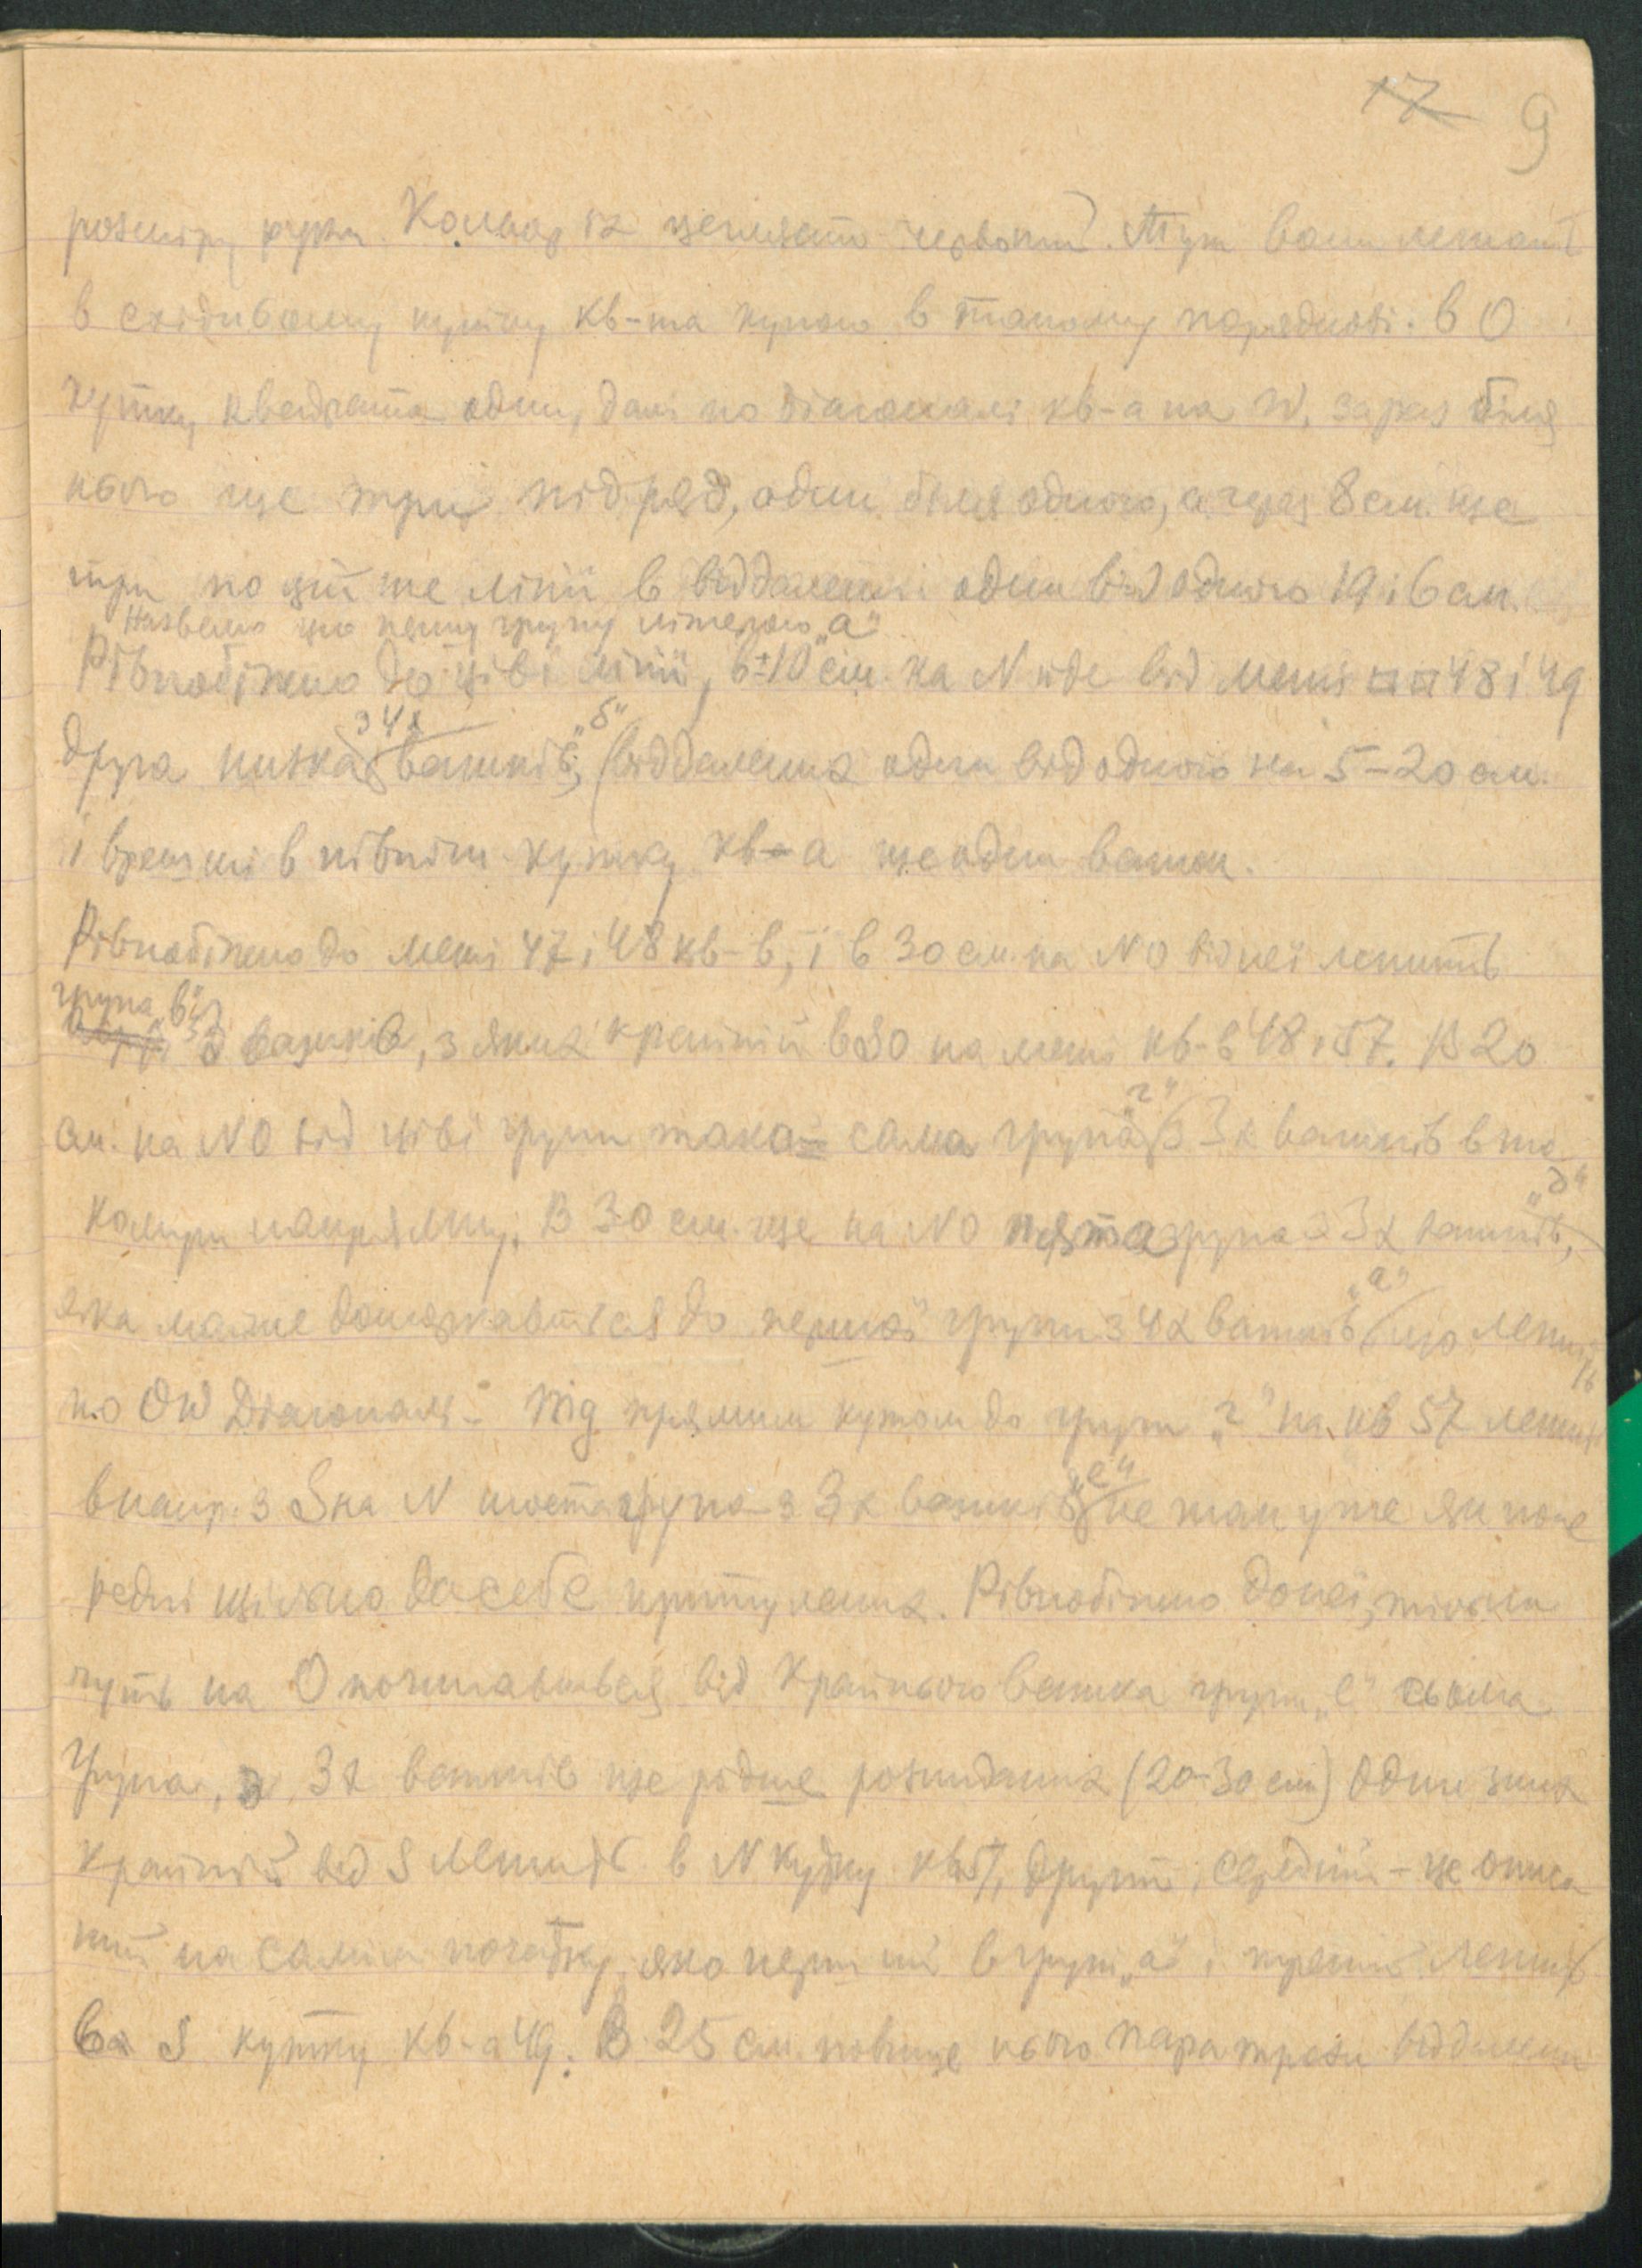 17 9
розміру руки. Кольор їх цеглясто червоний. Тут вони лежать
в східньому кутку кв-та купою в такому порядкові. в О
кутку квадрата один, далі по діагоналі кв-а на W, зараз біля
нього ще три підряд, один біля одного, а через 8 см. ще
три по цій же лінії в віддаленні один від одного 19 і 6 см.
Назвемо цю першу групу літерою „а"
Рівнобіжно до ціві лінії, в ± 10 см. на N йде від межі □ □ 48 і 49
друга низка з 4х важків, „б" віддалених один від одного на 5–20 см.
і врешті в північн. кутку кв-а ще один важок.
Рівнобіжно до межі 47 і 48 кв-в, і в 30 см. на NO від неї лежить
група „в" з важків, з яких крайній в SO на межі кв-в 48 і 57. В 20
см. на NO від ціві групи така сама група „г" з 3х важків в та-
кому напрямку. В 30 см. ще на NO п'ята група з 3х важків, „д"
яка майже дотикається до першої групи з 4х важків „а" що лежить
по OW діагоналі. Під прямим кутом до групи „г" на кв 57 лежить
в напр. з S на N шоста група з 3х важків „е" не так уже як попе
редні щільно до себе притулених. Рівнобіжно до неї, тільки
чуть на О починається від крайнього важка групи „е" сьома
група, з 3х важків ще рідше розкиданих (20-30 см) Один з них
крайній від S лежить в N кутку кв 57, другий, середній – це описа
ний на самім початку, яко перший в групі „а" і третій лежить
в S кутку кв-а 49. В 25 см. повище нього пара трохи віддалені